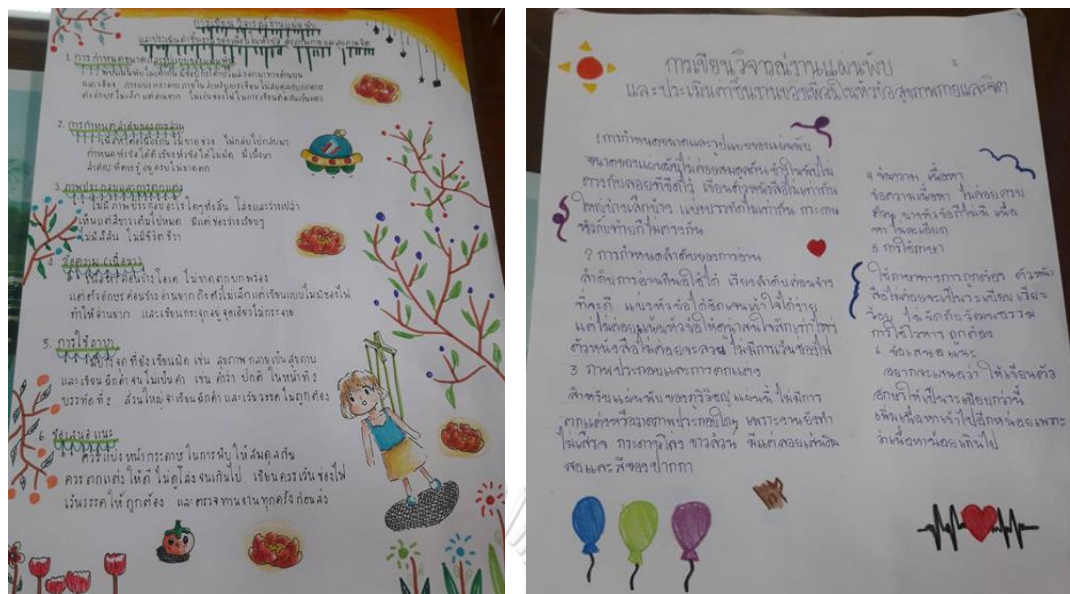 การเขียนวิจารณ์งานแผ่นพับ
และประเมินค่าชิ้นงานของเพื่อนในหัวข้อ สุขภาพกายและสุขภาพจิต
1. การกำหนดขนาดและรูปแบบของแผ่นพับ
และเขียน การแบ่งกระดาษภายในสำหรับการเขียนไม่สมดุลกับกระดาษ
2. การกำหนดลำดับของการอ่าน
เนื้อหาต่อเนื่องกัน ไม่ขาดช่วง ไม่กลับไปกลับมา
กำหนดหัวข้อได้ดี เรียงหัวข้อได้ไม่ผิด มีเนื้อหา
สำคัญที่ควรรู้อยู่ครบไม่ขาดตก
3. ภาพประกอบและการตกแต่ง
ไม่มีภาพประกอบอะไรใดๆทั้งสิ้น โล่งและว่างเปล่า
เห็นแต่สีขาวเต็มไปหมด มีแต่ช่องว่างเรียบๆ
ไม่มีสีสัน ไม่มีชีวิตชีวา
4. ข้อความ (เนื้อหา)
เนื้อหาค่อนข้างโอเค ไม่ขาดตกบกพร่อง
แต่ตัวอักษรค่อนข้างอ่านยาก ถึงตัวไม่เล็กแต่เขียนแบบไม่มีช่องไฟ
ทำให้อ่านยาก และเขียนกระจุกอยู่จุดเดียวไม่กระจาย
5. การใช้ภาษา
มีบางจุดที่ยังเขียนผิด เช่น สุขภาพ กลายเป็นสุขภาบ
และเขียนฉีกคำจนไม่เป็นคำ เช่น คำว่า ปกติ ในหน้าที่ 2
บรรทัดที่ 2 ส่วนใหญ่จะเขียนฉีกคำ และเว้นวรรคไม่ถูกต้อง
6. ข้อเสนอแนะ
ควรแบ่งหน้ากระดาษในการพับให้สมดุลกัน
ควรตกแต่งให้ดี ไม่ดูโล่งจนเกินไป เขียนควรเว้นช่องไฟ
เว้นวรรคให้ถูกต้อง และตรวจทานงานทุกครั้งก่อนส่ง
การเขียนวิจารณ์งานแผ่นพับ
และประเมินค่าชิ้นงานของเพื่อนในหัวข้อสุขภาพกายและจิต
1 การกำหนดขนาดและรูปแบบของแผ่นพับ
ขนาดของแผ่นพับไม่ค่อยสมดุลกัน
ตรงกับรอยที่ขีดไว้ เขียนตัวหนังสือไม่เท่ากัน
ใหญ่บ้างเล็กบ้าง แบ่งบรรทัดไม่เท่ากัน กระดาษ
หัวกับท้ายก็ไม่ตรงกัน
2 การกำหนดลำดับของการอ่าน
ลำดับการอ่านถือใช้ได้ เรียงลำดับค่อนข้าง
ที่จะดี แบ่งหัวข้อได้ชัดเจนเข้าใจได้ง่าย
แต่ไม่ค่อยเน้นหัวข้อให้ดูน่าสนใจสักเท่าไหร่
ตัวหนังสือไม่ค่อยจะสวย ไม่มีการเว้นช่องไฟ
3 ภาพประกอบและการตกแต่ง
ตกแต่งหรือวาดภาพประกอบใดๆ เพราะงานยังทำ
ไม่เสร็จ กระดาษโล่ง ขาวล้วน มีแต่รอยเส้นดิน
สอและสีของปากกา
4 ข้อความ เนื้อหา
ข้อความเนื้อหา ไม่ค่อยครบ
ถ้วน บางหัวข้อก็ไม่มี เนื้อ
หา ไม่ละเอียด
5 การใช้ภาษา
ใช้ภาษาทางการถูกต้อง ตัวหนัง
สือไม่ค่อยจะเป็นระเบียบ เรียบ
ร้อย ไม่ขัดกับวัฒนธรรม
การใช้โวหาร ถูกต้อง
6 ข้อเสนอแนะ
อยากจะเสนอว่า ให้เขียนตัว
อักษรให้เป็นระเบียบกว่านี้
เพิ่มเนื้อหาเข้าไปอีกหน่อยเพราะ
ว่าเนื้อหาน้อยเกินไป